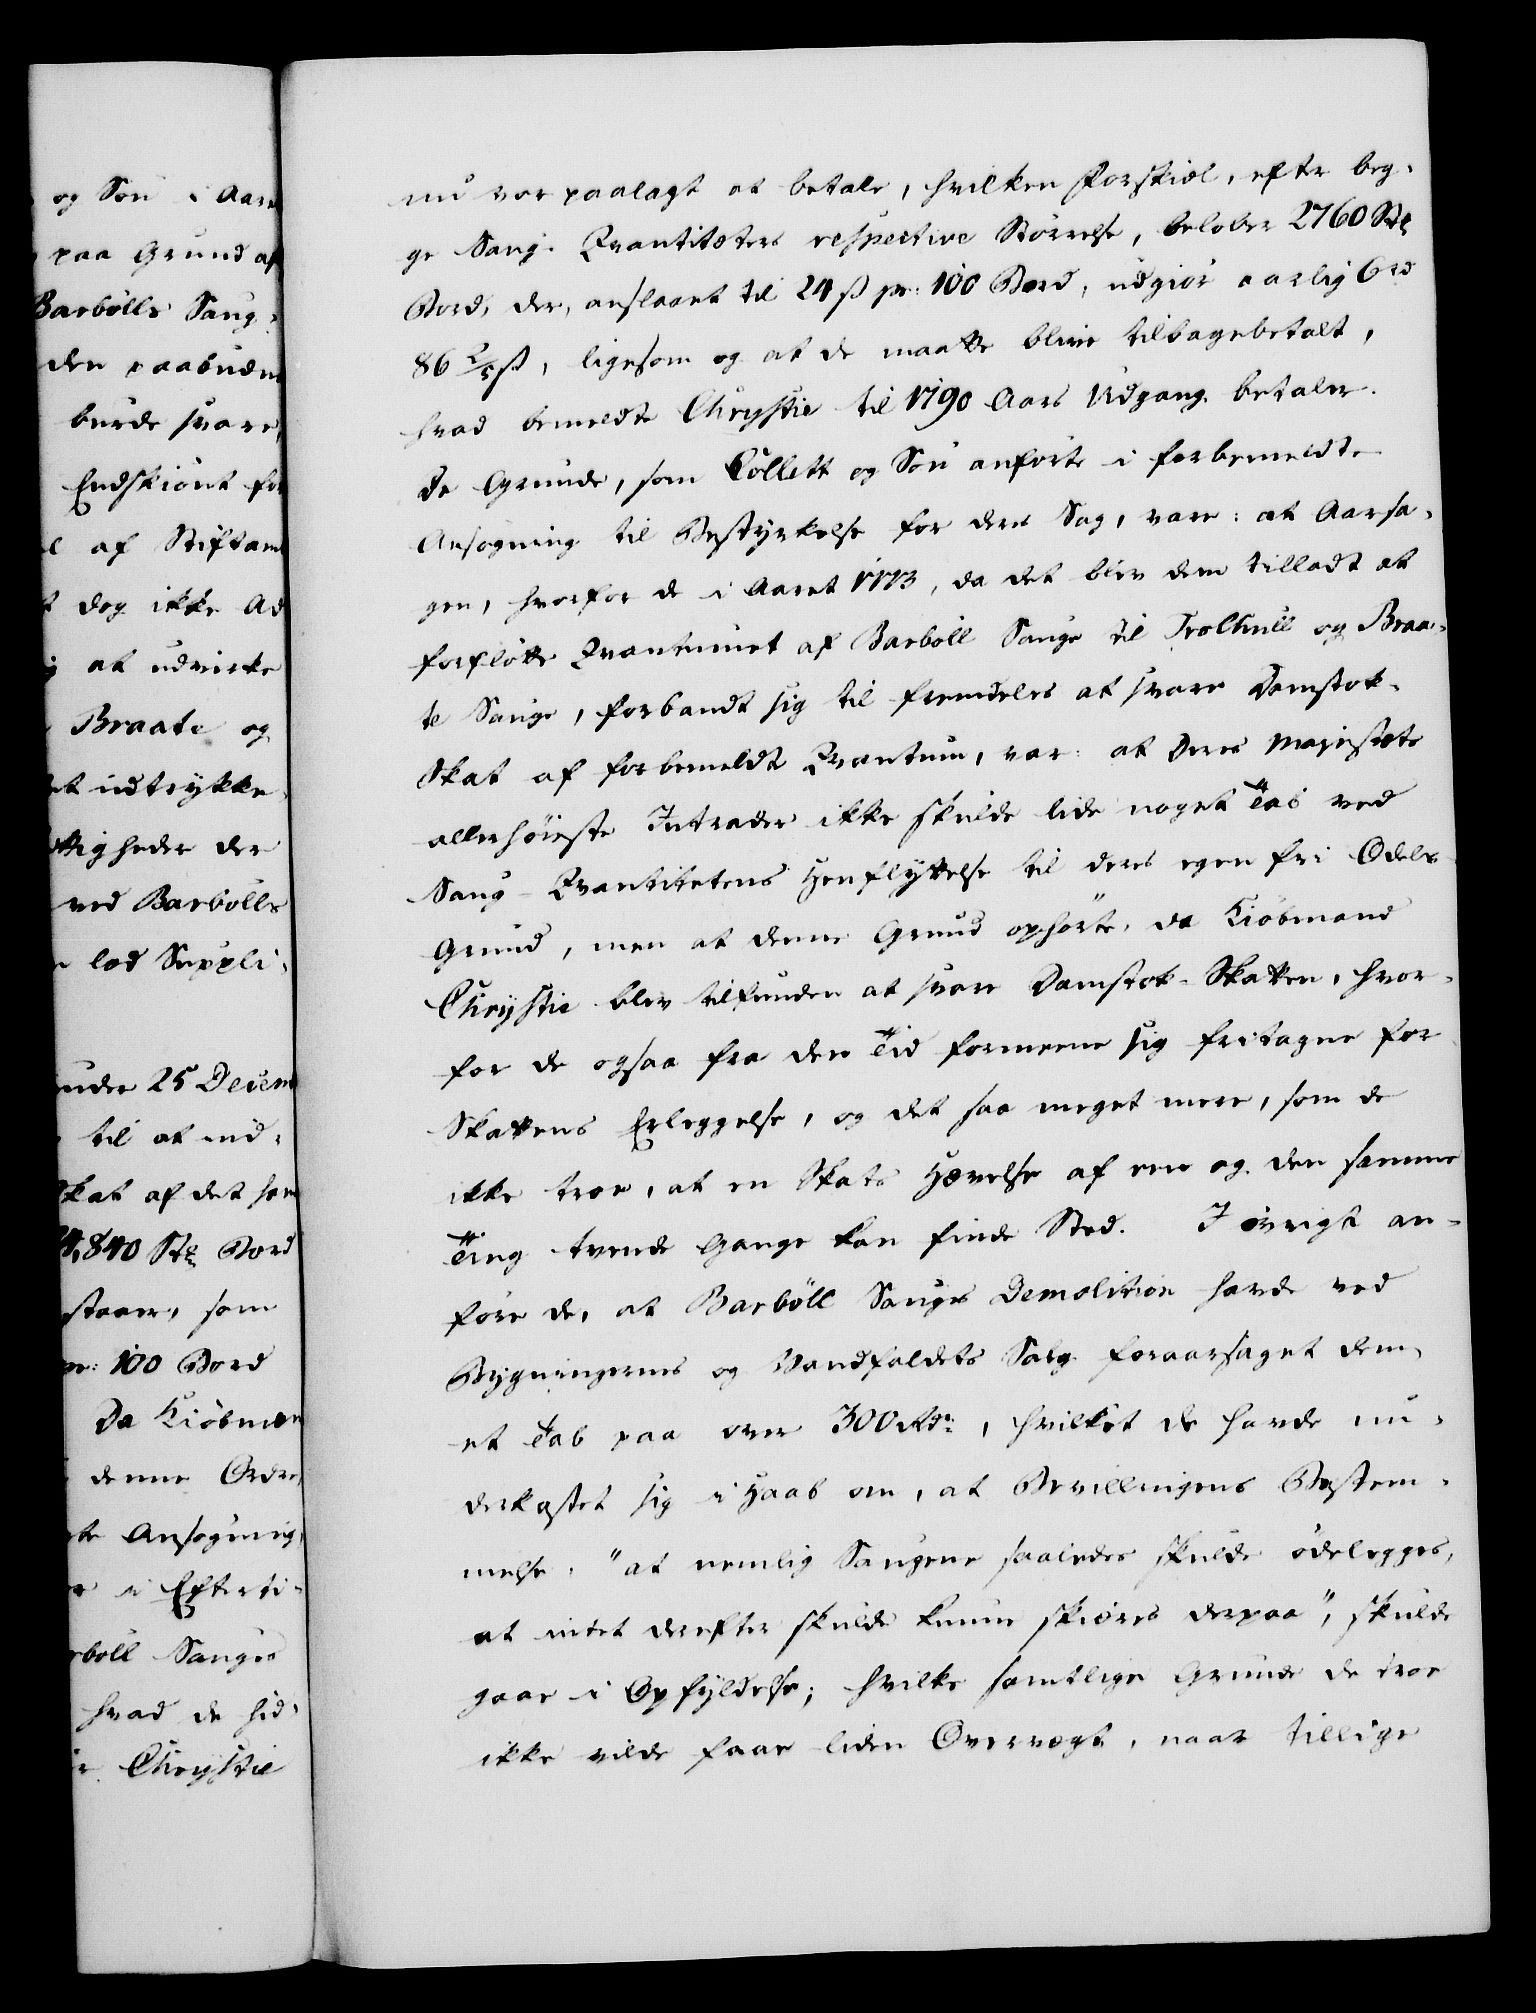 og Søn i Aare
paa Grund af
Barbølls Saug-
den paabudne
burde svare,
Endskiønt for
af Stiftam
dog ikke Ad
at udvirke
Braate og
et udtrykke
ttigheder der
ved Barbølls
lod Suppli-
under 25 Decem
til at ind-
Skat af det for
4,840 Stk Bord
staaer, som
pr: 100 Bord
Da Kiøbman
denne Ordre,
te Ansøgning
i Efterti-
bøll Sauges
hvad de hid-
Chrystie
nu var paalagt at betale, hvilken Forskiel, efter beg-
ge Saug-Qvantiteters respective Størrelse, beløber 2760 Stk
Bord, der, anslaaet til 24 ß pr: 100 Bord, udgiør aarlig 6 rd
86 2/5 ß, ligesom og at de maatte blive tilbagebetalt,
hvad bemeldte Chrystie til 1790 Aars Udgang betaler.
De Grunde, som Collett og Søn anførte i forbemeldte
Ansøgning til Bestyrkelse for deres Sag, vare: at Aarsa-
gen, hvorfor de i Aaret 1773, da det blev dem tilladt at
forflötte Qvantumet af Barböll Sauge til Trolhull og Braa-
te Sauge, forbandt sig til fremdeles at svare Damstok-
Skat af forbemeldte Qvantum, var: at Deres Majestæts
allerhöieste Intrader ikke skulde lide noget Tab ved
Saug-Qvantitetens Henflyttelse til deres egen fri Odels
Grund, men at denne Grund ophörte, da Kiøbmand
Chrystie blev tilfunden at svare Damstok-Skatten, hvor-
for de ogsaa fra den Tid formeene sig fritagne for
Skattens Erleggelse, og det saa meget mere, som de
ikke troe, at en Skats Hævelse af een og den samme
Ting tvende Gange kan finde Sted. I øvrigt an-
føre de, at Barböll Sauges Demolition havde ved
Bygningernes og Vandfaldets Salg foraarsaget dem
et Tab paa over 300 Rdr, hvilket de havde un-
derkastet sig i Haab om, at Bevillingens Bestem-
melse, "at nemlig Saugene saaledes skulde ödelegges,
at intet derefter skulde kunne skiæres derpaa", skulde
gaae i Opfyldelse; hvilke samtlige Grunde de troe
ikke vilde faae liden Overvægt, naar tillige